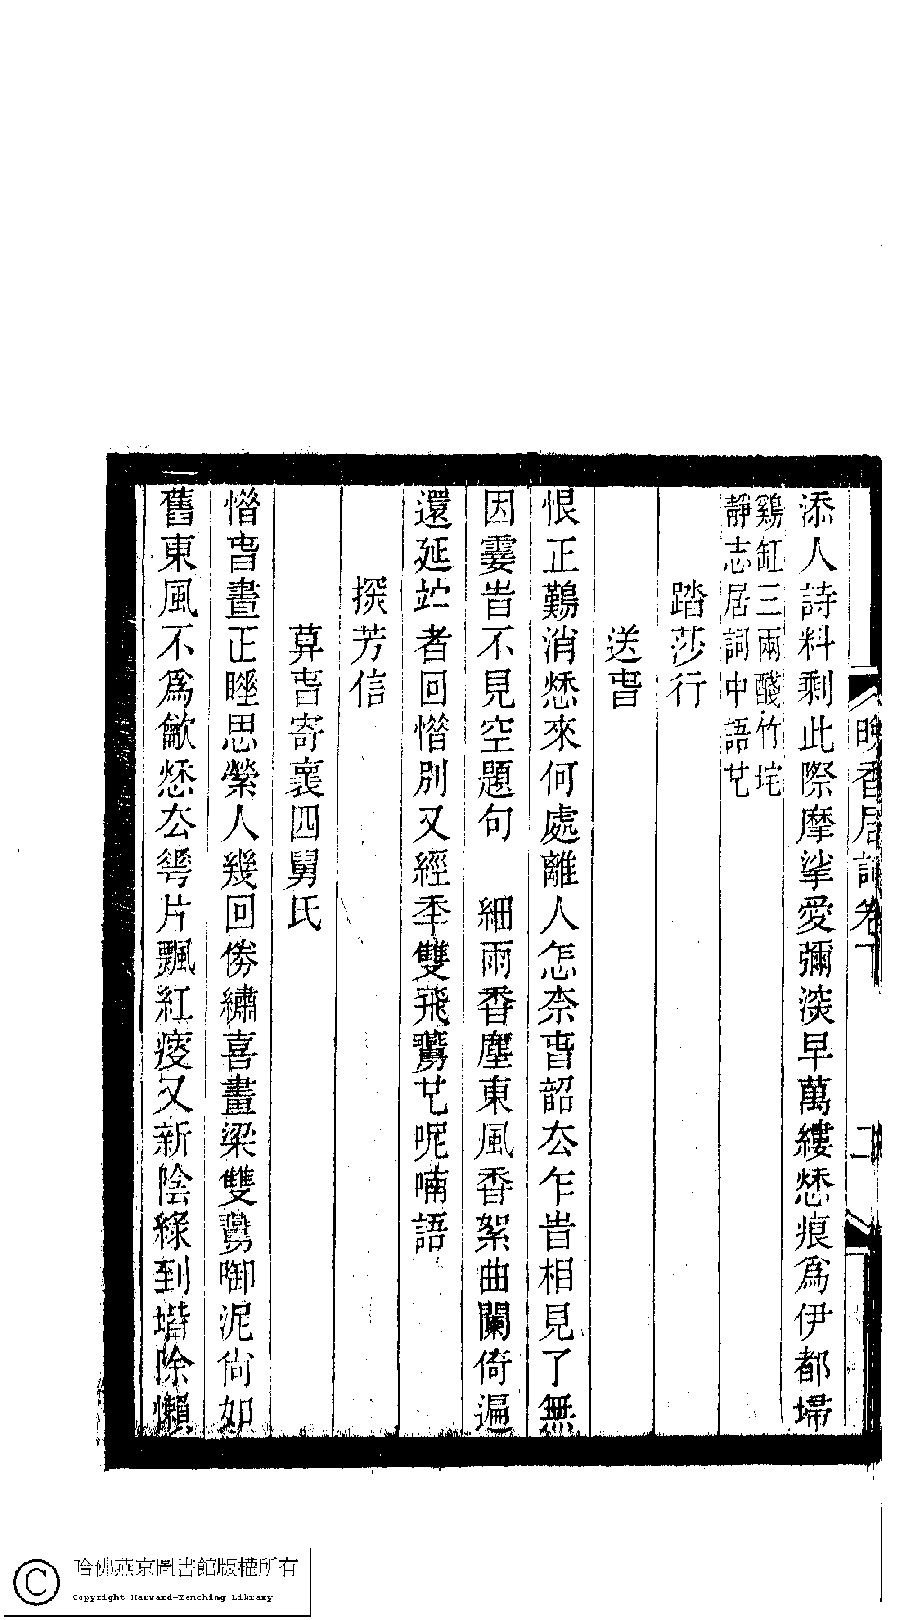 晚香居詞卷下
二
添人詩料剩此際摩挲愛彌淡早萬縷愁痕爲伊都埽
鷄缸三兩醆竹垞
靜志居詞中語也
踏莎行
送旾
恨正難消愁來何處離人怎柰旾韶厺乍旹相見了無
因霎旹不見空題句　細雨香塵東風香絮曲闌倚遍
還延竚　者回憯別又經秊雙飛燕也呢喃語
探芳信
算旾寄襄四舅氏
憯旾晝正睡思縈人幾回倦繡喜畫梁雙燕啣泥尙如
舊東風不爲歛愁厺蕚片飄紅瘦又新陰綠到堦除懶
哈佛燕京圖書館版權所有
Copyright Harvard-Yenching Library